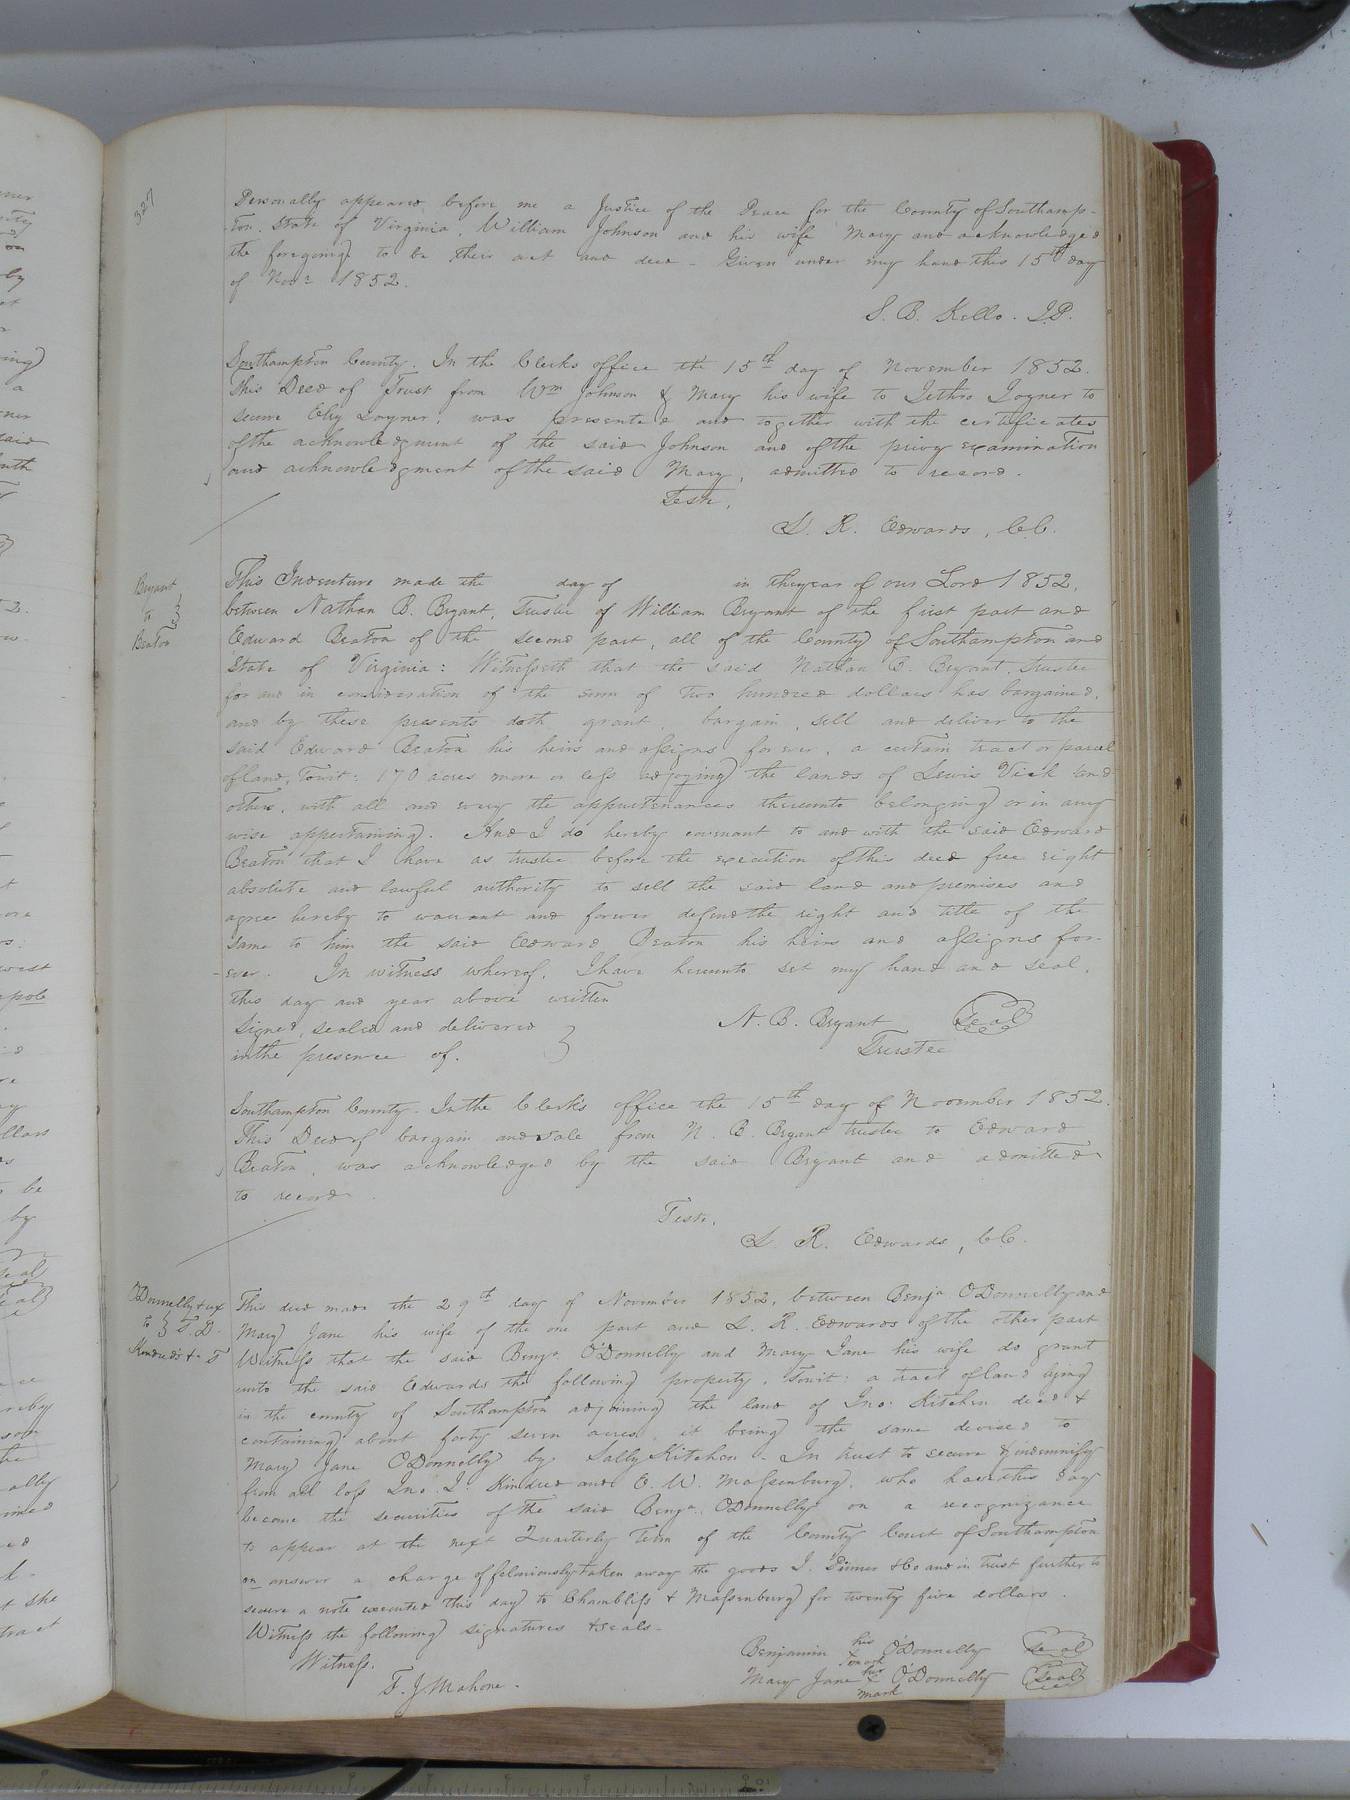 327
Personally appeared before me a Justice of the Peace for the County of Southamp-
ton. State of Virginia, William Johnson and his wife Mary and acknowledged
the foregoing to be their act and deed - Given under my hand this 15th day
of Novr 1852.
S. B. Kello. J.P.
Southampton County. In the Clerks office the 15th day of November 1852.
This Deed of Trust from Wm Johnson & Mary his wife to Jethro Joyner to
secure Ely Joyner, was presented and together with the certificates
of the acknowledgment of the said Johnson and of the privy examination
and acknowledgment of the said Mary, admitted to record.
Teste,
L. R. Edwards, C.C.
Bryant
to }
Beaton
This Indenture made the day of in the year of our Lord 1852,
between Nathan B. Bryant, Trustee of William Bryant of the first part and
Edward Beaton of the second part, all of the County of Southampton and
State of Virginia: Witnesseth that the said Nathan B. Bryant, trustee
for and in consideration of the sum of two hundred dollars has bargained,
and by these presents doth grant bargain, sell and deliver to the
said Edward Beaton his heirs and assigns forever, a certain tract or parcel
of land, Towit: 170 acres more or less adjoying the lands of Lewis Vick and
others, with all and every the appurtenances thereunto belonging or in any
wise appertaining. And I do hereby covenant to and with the said Edward
Beaton that I have as trustee before the execution of this deed free right
absolute and lawful authority to sell the said land and premises and
agree hereby to warrant and forever defend the right and title of the
same to him the said Edward Beaton his heirs and assigns for-
-ever. In witness whereof, I have hereunto set my hand and seal,
this day and year above written
Signed, sealed and delivered }
in the presence of.
N. B. Bryant Seal
Trustee
Southampton County. In the Clerk's office the 15th day of November 1852.
This Deed of bargain and sale from N. B. Bryant trustee to Edward
Beaton, was acknowledged by the said Bryant and admitted
to record
Teste,
L. R. Edwards, C.C.
O'Donnelly & ux
to } T. D.
Kindred &
This deed made the 29th day of November 1852, between Benja O'Donnelly and
Mary Jane his wife of the one part and L. R. Edwards of the other part
Witness that the said Benja O'Donnelly and Mary Jane his wife do grant
unto the said Edwards the following property, Towit: a tract of land lying
in the county of Southampton adjoining the land of Jno: Kitchen decd &
containing about forty seven acres, it being the same devised to
Mary Jane O'Donnelly by Sally Kitchen - In trust to secure & indemnify
from all loss Jno. J. Kindred and O. W. Massenburg, who have this day
become the securities of the said Benja. O'Donnelly on a recognizance
to appear at the next Quarterly Term of the County Court of Southampton
on answer a charge of feloniously taken away the goods J. & Co and in trust further to
secure a note executed this day to Chambliss & Massenburg for twenty five dollars.
Witness the following signatures & seals -
Witness.
T. J. Mahone.
Benjamin his x mark O'Donnelly Seal
Mary Jane his x mark O'Donnelly Seal